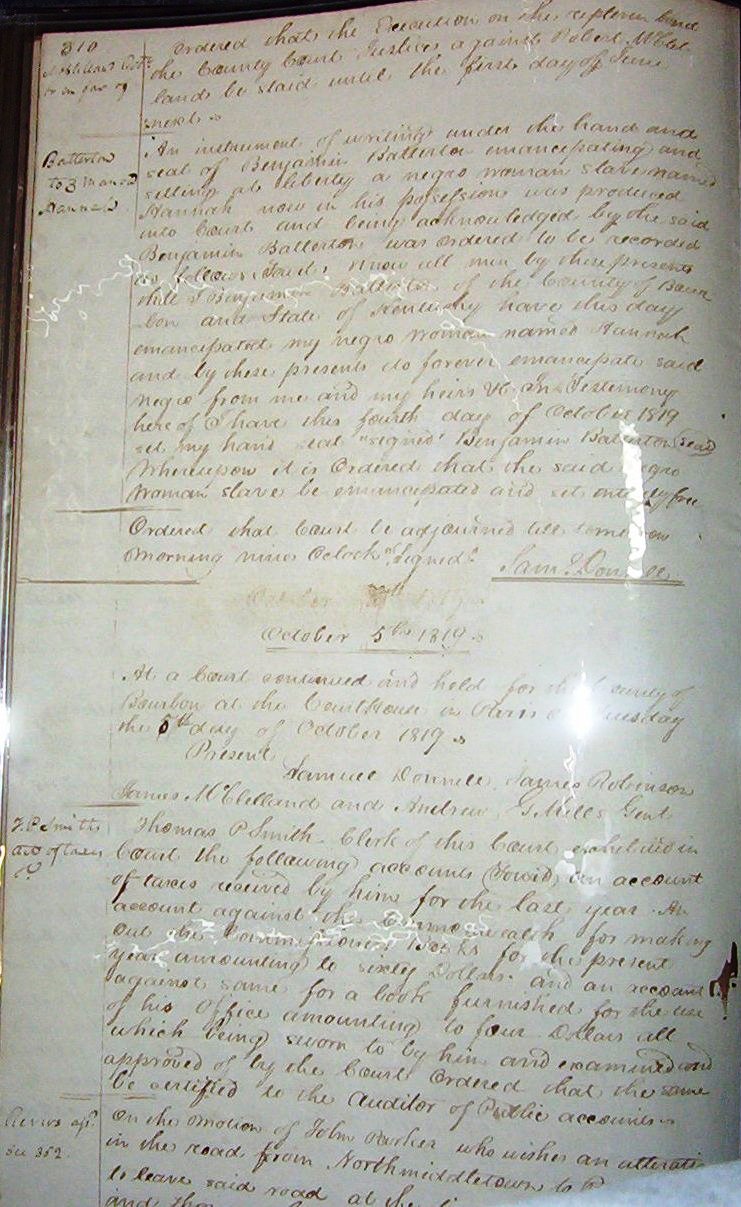 310
Ordered that the Execution on the replevin bond
the County Court Justices against Robert McClel
land be staid until the first day of June
next
Batterton
to 3 Manon
Hannah
An instrument of writing under the hand and
seal of Benjamin Batterton emancipating and
setting at liberty a negro woman slave named
Hannah now in his possession was produced
into Court and being acknowledged by the said
Benjamin Batterton was ordered to be recorded
as follows towit, Know all men by these presents
that I Benjamin Batterton of the County of Bour
bon and State of Kentucky have this day
emancipated my negro woman named Hannah
and by these presents do forever emancipate said
negro from me and my heirs &c In Testimony
here of I have this fourth day of October 1819
set my hand seal "signed" Benjamin Batterton (seal)
Whereupon it is Ordered that the said negro
woman slave be emancipated and set entirely free
Ordered that Court be adjourned till tomorrow
morning nine Oclock "signed"
Saml. Donnell
October 5th 1819
October 5th 1819
At a Court continued and held for the County of
Bourbon at the Courthouse in Paris on Tuesday
the 5th day of October 1819
Present
Samuel Donnell, James Robinson
James McClelland and Andrew G Mills Gent
T. P Smith
acct of taxes
Thomas P Smith Clerk of this Court exhibited in
Court the following accounts (Towit) an account
of taxes received by him for the last year. An
account against the Commonwealth for making
out the Commissioners Books for the present
year amounting to sixty Dollars. and an account
against same for a book furnished for the use
of his Office amounting to four Dollars all
which being sworn to by him and examined and
approved of by the Court Ordered that the same
be certified to the Auditor of Public accounts
see 352
On the motion of John Parker who wishes an alterati
in the road from Northmiddletown to
to leave said road at the
and